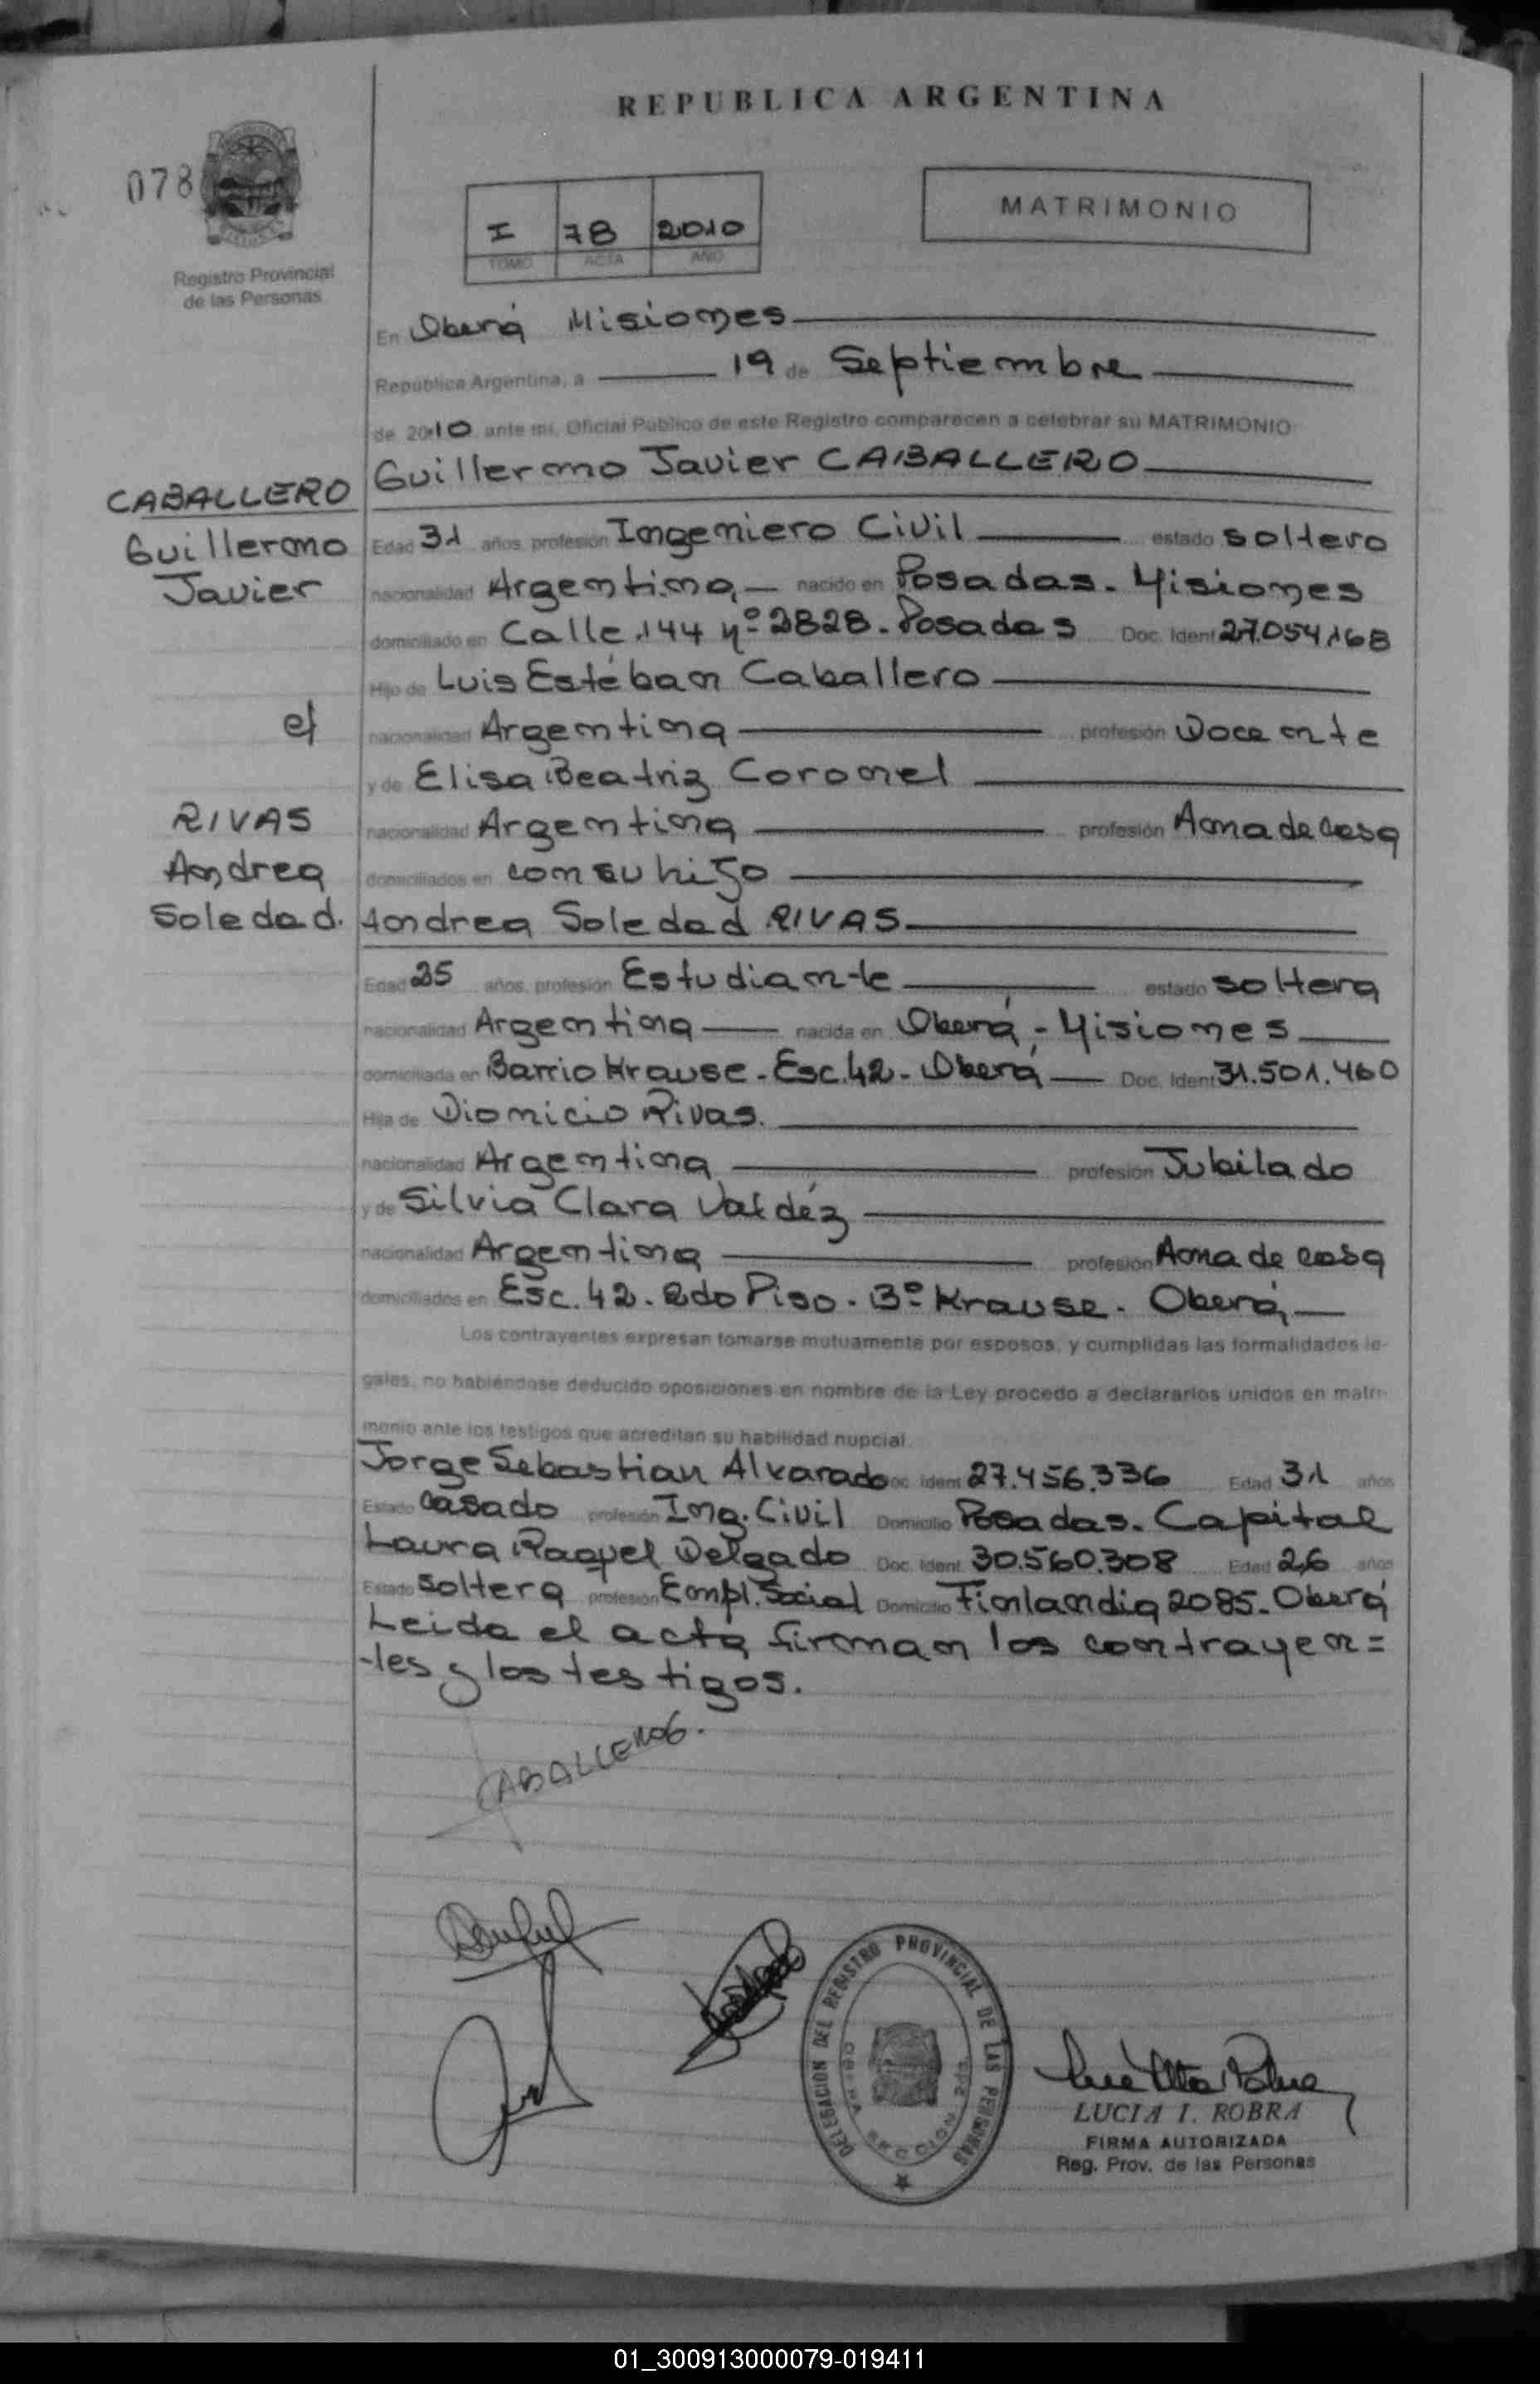 REPUBLICA ARGENTINA
078
Registro Provincial
de las Personas
I 78 2010
TOMO ACTA AÑO
MATRIMONIO
En Oberá Misiones
República Argentina, a 19 de Septiembre
de 2010 ante mi, Oficial Público de este Registro comparecen a celebrar su MATRIMONIO
Guillermo Javier CABALLERO
CABALLERO
Guillermo
Javier
Edad 31 años, profesión Ingeniero Civil estado soltero
nacionalidad Argentina nacido en Posadas - Misiones
domiciliado en Calle 144 Nº 2828 - Posadas Doc. Ident 27.054.168
Hijo de Luis Estéban Caballero
c/
nacionalidad Argentina profesión Docente
y de Elisa Beatriz Coronel
RIVAS
Andrea
Soledad.
nacionalidad Argentina profesión Ama de casa
domiciliados en con su hijo
Andrea Soledad RIVAS
Edad 25 años, profesión Estudiante estado soltera
nacionalidad Argentina nacida en Oberá - Misiones
domiciliada en Barrio Krause - Esc. 42 - Oberá Doc. Ident 31.501.460
Hija de Dionicio Rivas.
nacionalidad Argentina profesión Jubilado
y de Silvia Clara Valdéz
nacionalidad Argentina profesión Ama de casa
domiciliados en Esc. 42 - 2do Piso - Bº Krause - Oberá
Los contrayentes expresan tomarse mutuamente por esposos, y cumplidas las formalidades le-
gales, no habiéndose deducido oposiciones en nombre de la Ley procedo a declararlos unidos en matri-
monio ante los testigos que acreditan su habilidad nupcial.
Jorge Sebastian Alvarado Doc. Ident 27.456.336 Edad 31 años
Estado casado profesión Ing. Civil Domicilio Posadas - Capital
Laura Raquel Delgado Doc. Ident 30.560.308 Edad 26 años
Estado soltera profesión Empl. Social Domicilio Finlandia 2085 - Oberá
Leida el acta firman los contrayen=
tes y los testigos.
CABALLERO G.
DELEGACION DEL REGISTRO PROVINCIAL DE LAS PERSONAS
LUCIA I. ROBRA
FIRMA AUTORIZADA
Reg. Prov. de las Personas
01_300913000079-019411